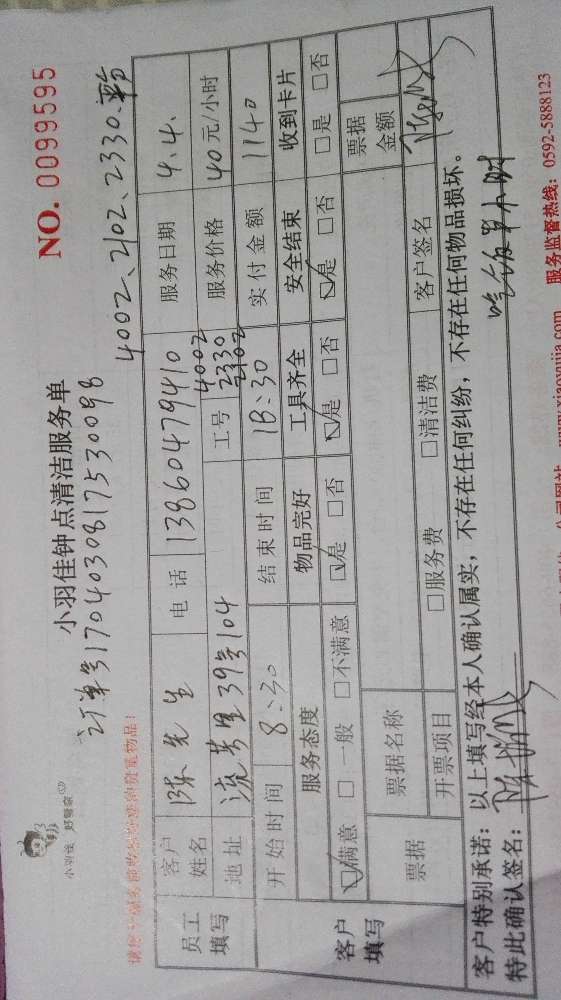 小羽佳 好管家
小羽佳钟点清洁服务单
NO. 0099595
订单号170403081753 0098
4002、2102、2330
客户姓名 陈先生 电话 13860479410 服务日期 4.4.
员工填写
地址 39号104 工号 4002 2330 2102 服务价格 40元/小时
开始时间 8:30 结束时间 18:30 实付金额 1140
客户填写
服务态度 物品完好 工具齐全 安全结束 收到卡片
☑满意 □一般 □不满意 ☑是 □否 ☑是 □否 ☑是 □否 □是 □否
票据 票据名称 票据金额
开票项目 □服务费 □清洁费 客户签名
客户特别承诺：以上填写经本人确认属实，不存在任何纠纷，不存在任何物品损坏。
特此确认签名：
吃饭半小时
服务监督热线：0592-5888123